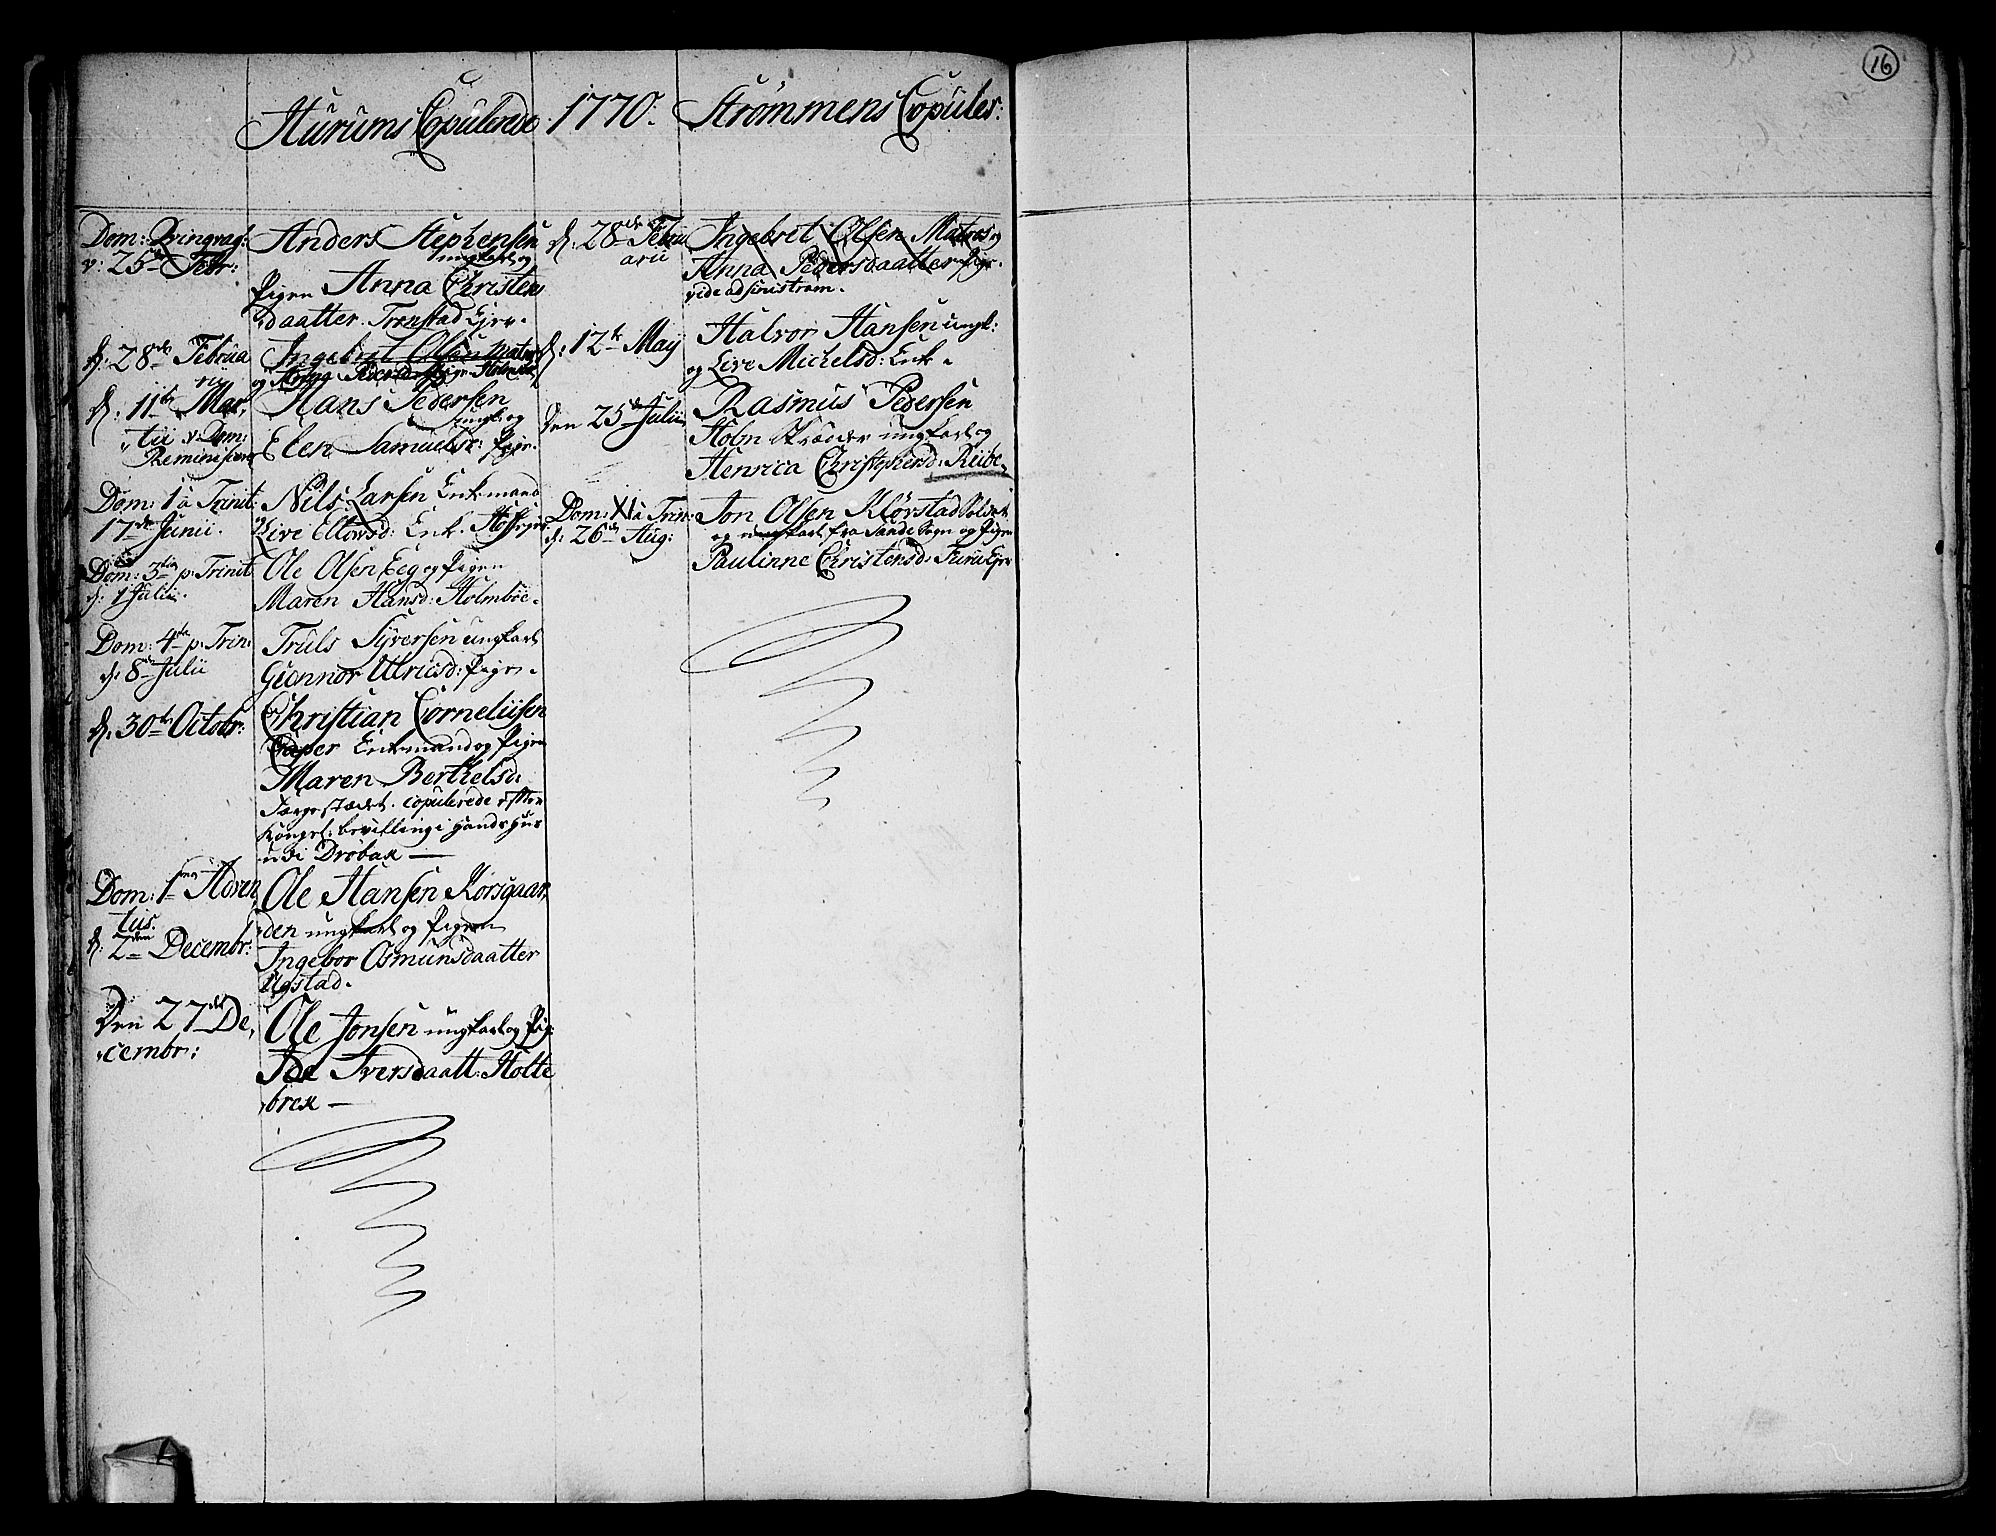 16
Hurums Copulerede 1770. Strømmens Copuler:
Dom: Qvinqvag:
d: 25de Febr:
Anders Stephensen
ungkarl og
Pigen Anna Christen
daatter Tronstad Ejer.
d: 28de Februa
rii
Ingebret Olsen Matros
og Anna Pedersd: Pige Holmsbo
d: 11te Mar,
tii v: Dom:
Reminiscere
Hans Pedersen
ungk: og
Elen Samuelsd: Pige.
Dom: 1 a Trinit:
17de Junii.
Nils Larsen Enkemand
og Live Ellovsd: Enke.
Dom: 3tia p: Trinit
d: 1 Julii.
Ole Olsen Eeg og Pigen
Maren Hansd: Holmböe.
Dom: 4ta p: Trin:
d: 8de Julii
Truls Syversen ungkarl
Gunnor Ulricsd: Pige.
d: 30te Octobr:
Christian Cornelüsen
Enkemand og Pigen
Maren Berthelsd:
copulerede efter
Kongel: bevilling i hands huus
udi Drøbak —
Dom: 1ma Adven
tus.
d: 2den Decembr:
Ole Hansen Korsgaar,
den ungkarl og Pigen
Ingebor Osmunsdaatter
Ugstad.
Den 27de De,
cembr:
Ole Jonsen ungkarl og Pig:
Ide Iversdaatt: Holte
brek —
d: 28de Febru
arii
Ingebret Olsen Matros og
Anna Pedersdaatter Pige.
vide ad sinistram.
d: 12te Maij
Halvor Hansen ungk:
og Live Michelsd: Enke
Den 25de Julii
Rasmus Pedersen
Holm Skræder ungkarl og
Henrica Christophersd: Riibe.
Dom: XI a Trin:
d: 26de Aug:
Jon Olsen Klørstad Soldat
og ungkarl fra Sande Sogn og Pigen
Paulinne Christensd: Furu Ejer